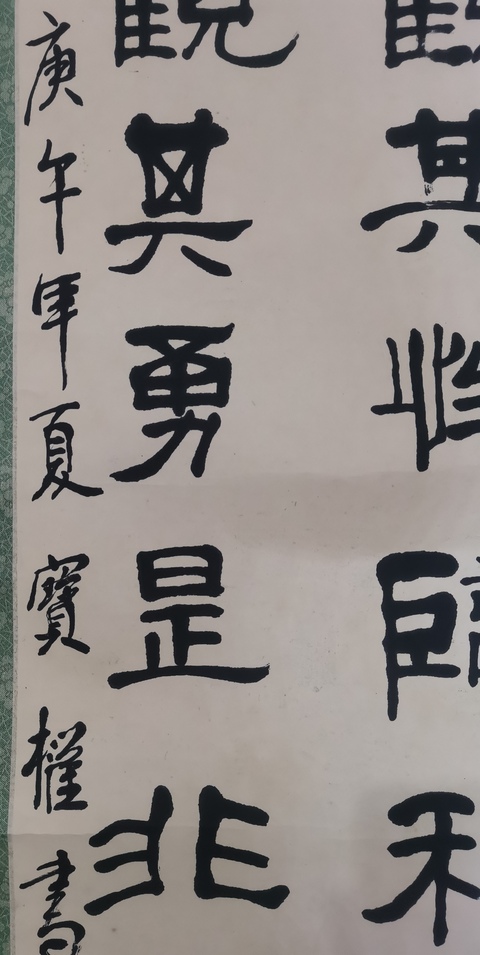 觀其性臨利
觀其勇是非
庚午年夏寶權書